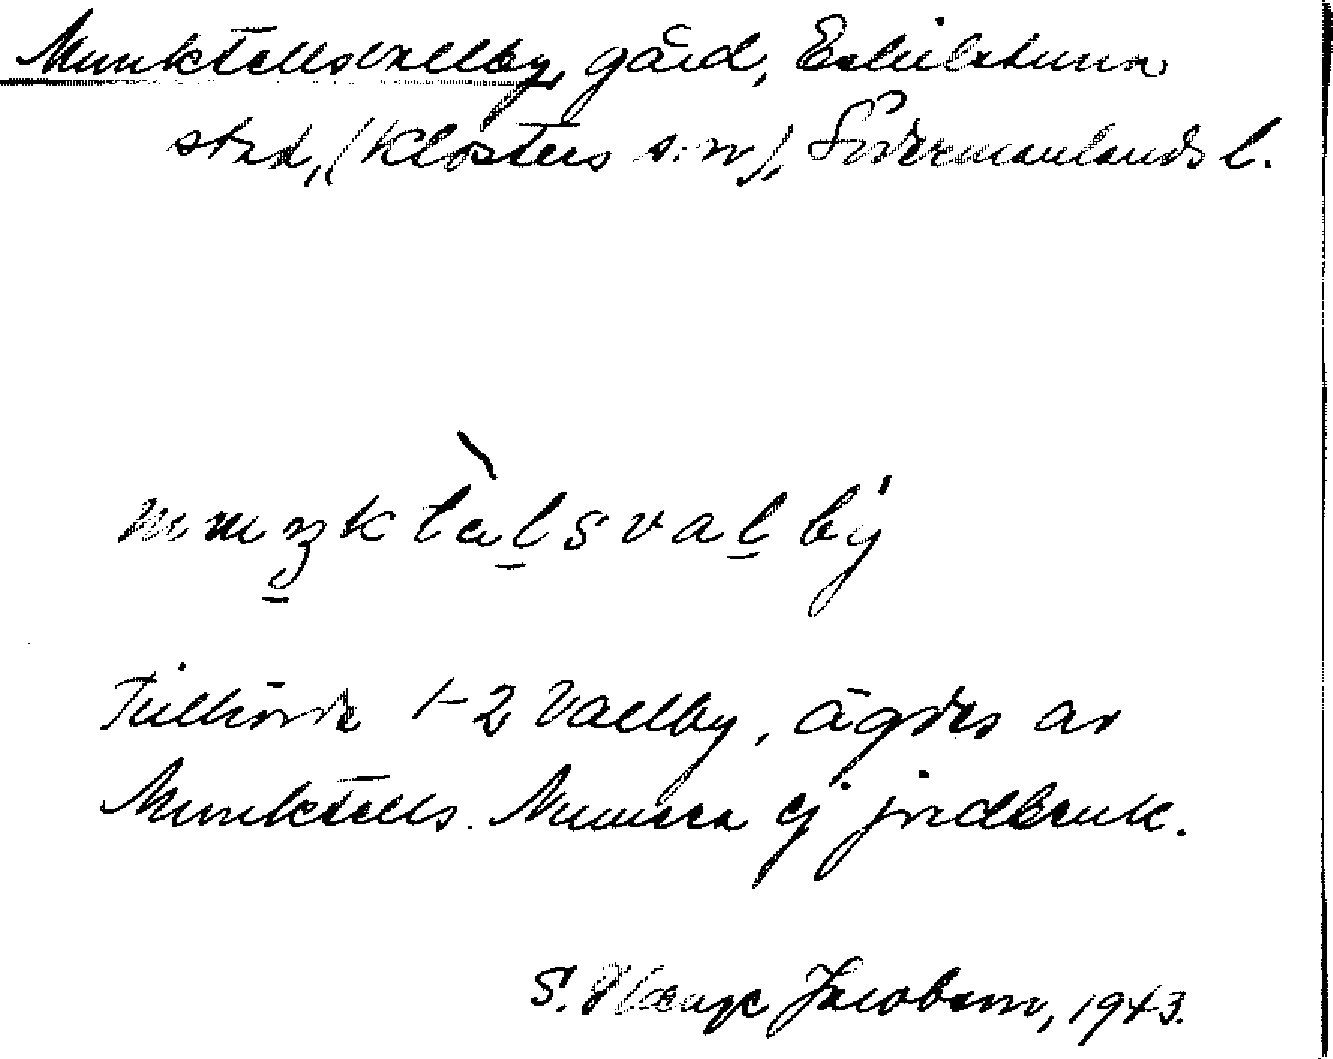 Munktellsvallby, gård, Eskilstuna
stad, (Klosters s:n), Södermanlands l.
muŋktälsvalby
Tillhörde 1-2 Vallby, ägdes av
Munktells. Numera ej jordbruk.
S. Jacobson, 1943.